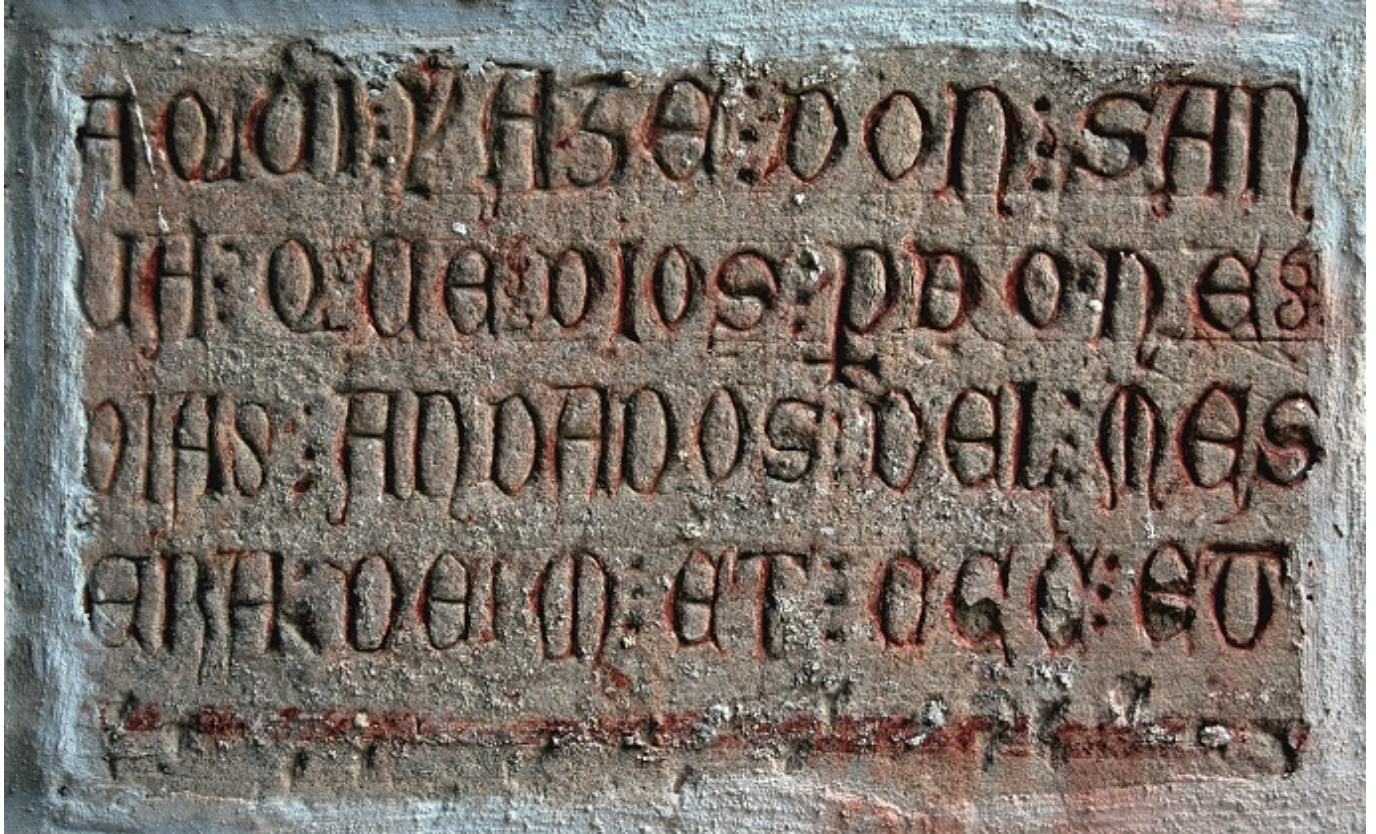 AQUI : YAZE : DON : SAN
CHA : QUE DIOS : PDONE
DIAS : ANDADOS DEL : MES
ERA DE M : ET : CCC : ET